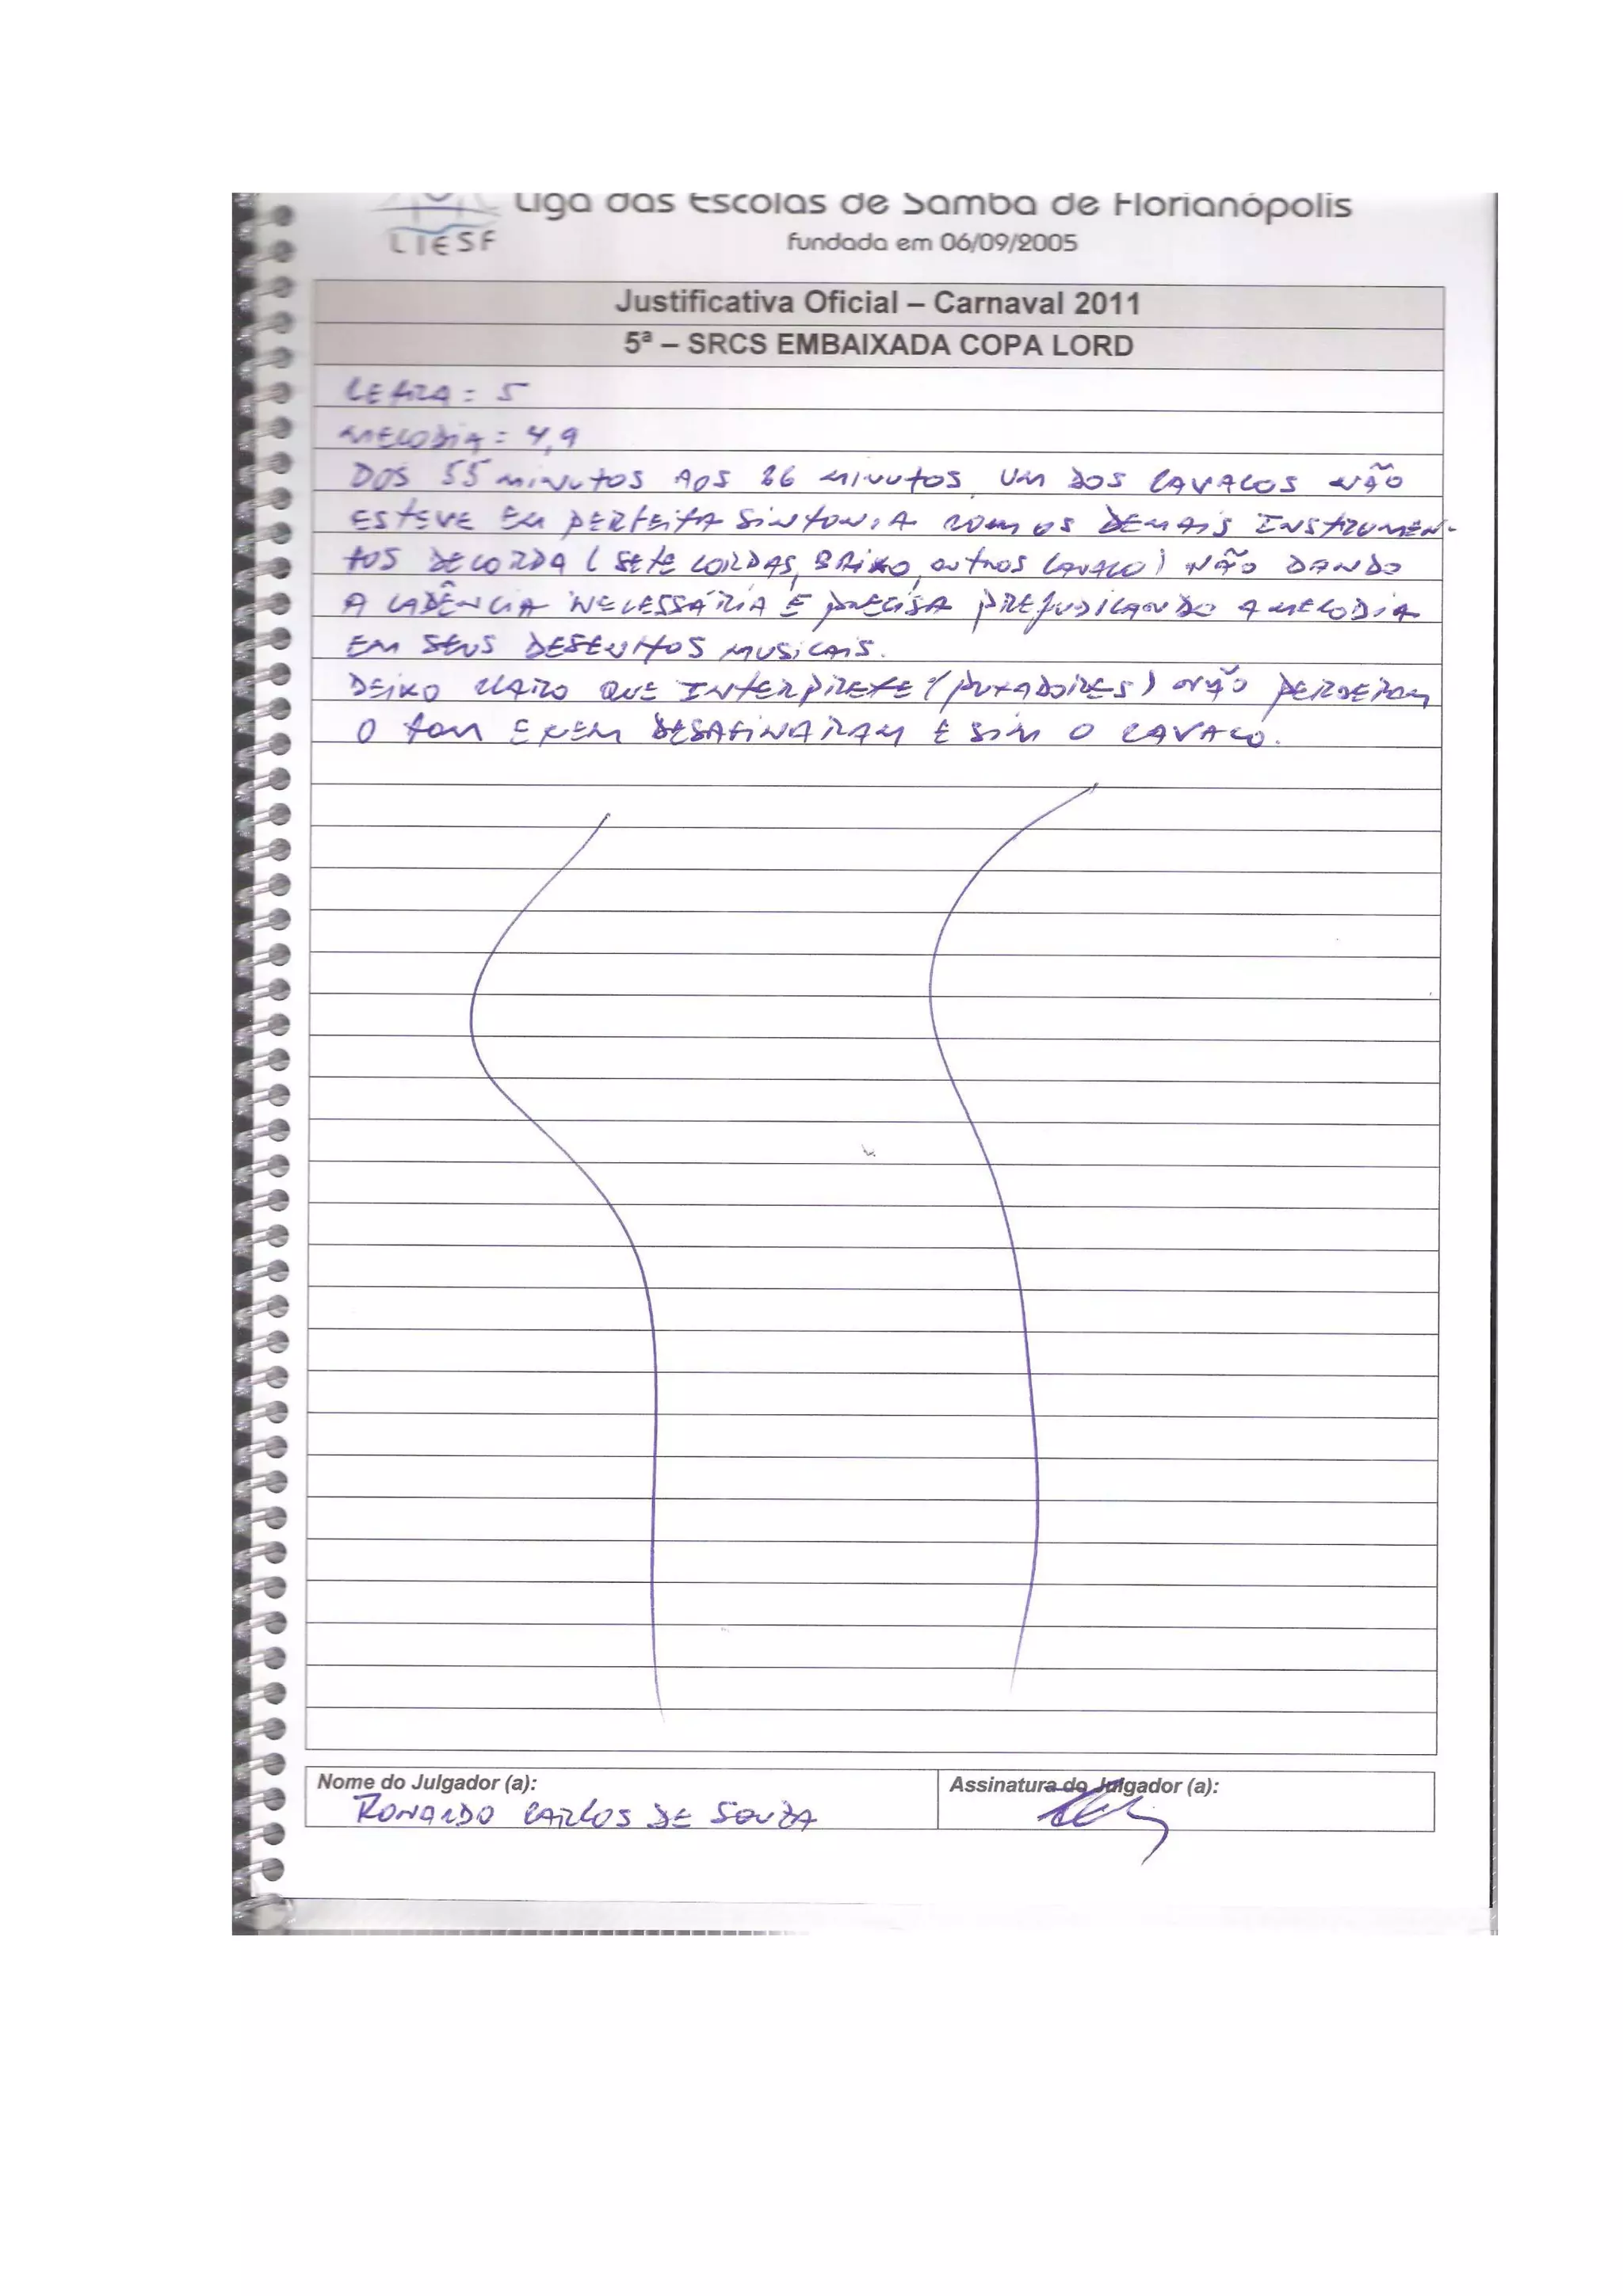 Liga das Escolas de Samba de Florianópolis
LIESF
fundada em 06/09/2005
Justificativa Oficial – Carnaval 2011
5ª – SRCS EMBAIXADA COPA LORD
LETRA = 5
MELODIA = 4,9
DOS 55 MINUTOS AOS MINUTOS UM DOS CAVACOS NÃO
ESTEVE EM PERFEITA SINTONIA COM OS DEMAIS INSTRUMEN-
TOS DE CORDA (SETE CORDAS, BAIXO, OUTROS CAVACO) NÃO DANDO
A CADÊNCIA NECESSÁRIA E PRECISA PREJUDICANDO A MELODIA
EM SEUS DESENHOS MUSICAIS.
DEIXO CLARO QUE INTERPRETE (PUXADORES) NÃO PERDERAM
O TOM E NEM DESAFINARAM E SIM O CAVACO.
Nome do Julgador (a):
RONALDO CARLOS DE SOUZA
Assinatura do Julgador (a):